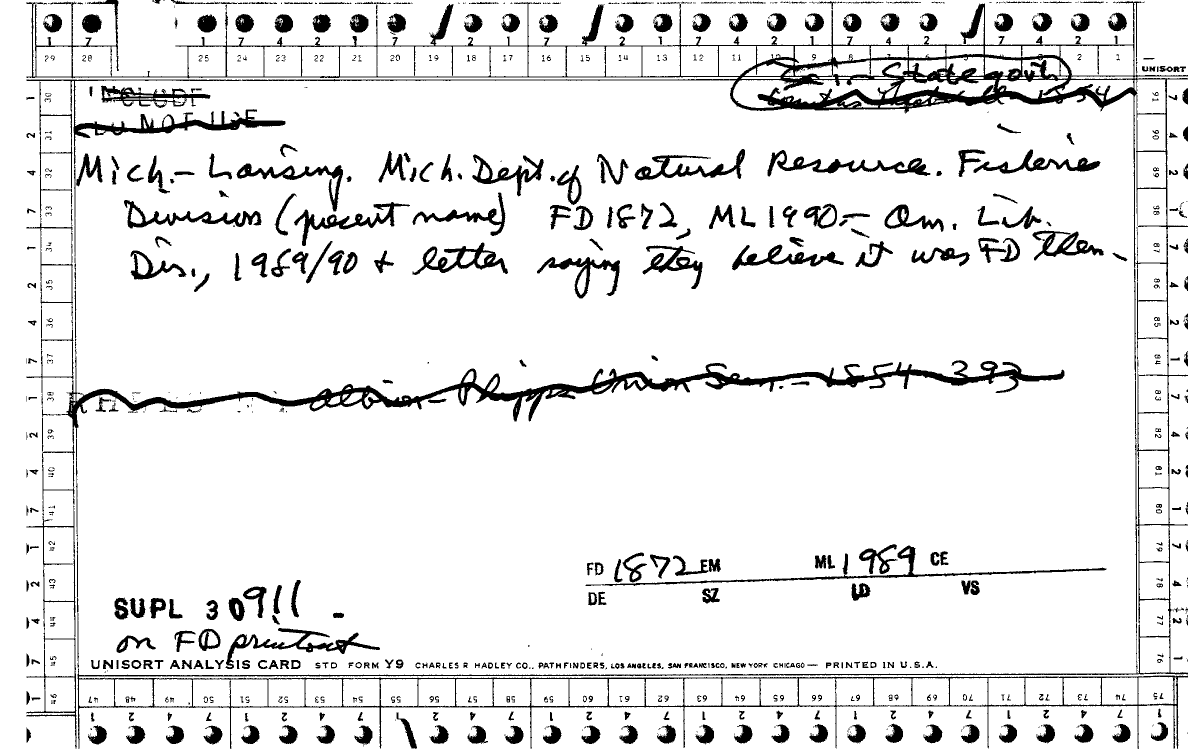 1 7 1 7 4 2 1 7 4 2 1 7 4 2 1 7 4 2 1 7 4 2 1
29 28 25 24 23 22 21 20 19 18 17 16 15 14 13 12 11 10 9 2 1
UNISORT
Sci. - State govt
1854
INCLUDE
DO NOT USE
Mich.- Lansing. Mich. Dept. of Natural Resource. Fisheries
Division (present name) FD 1872, ML 1990.- Am. Lib.
Dir., 1989/90 + letter saying they believe it was FD then-
Albion- Phipps Union Sem. - 1854 393
FD 1872 EM ML 1989 CE
DE SZ LD VS
SUPL 30911 -
on FD printout
UNISORT ANALYSIS CARD STD FORM Y9 CHARLES R HADLEY CO., PATHFINDERS, LOS ANGELES, SAN FRANCISCO, NEW YORK CHICAGO — PRINTED IN U.S.A.
47 48 49 50 51 52 53 54 55 56 57 58 59 60 61 62 63 64 65 66 67 68 69 70 71 72 73 74 75